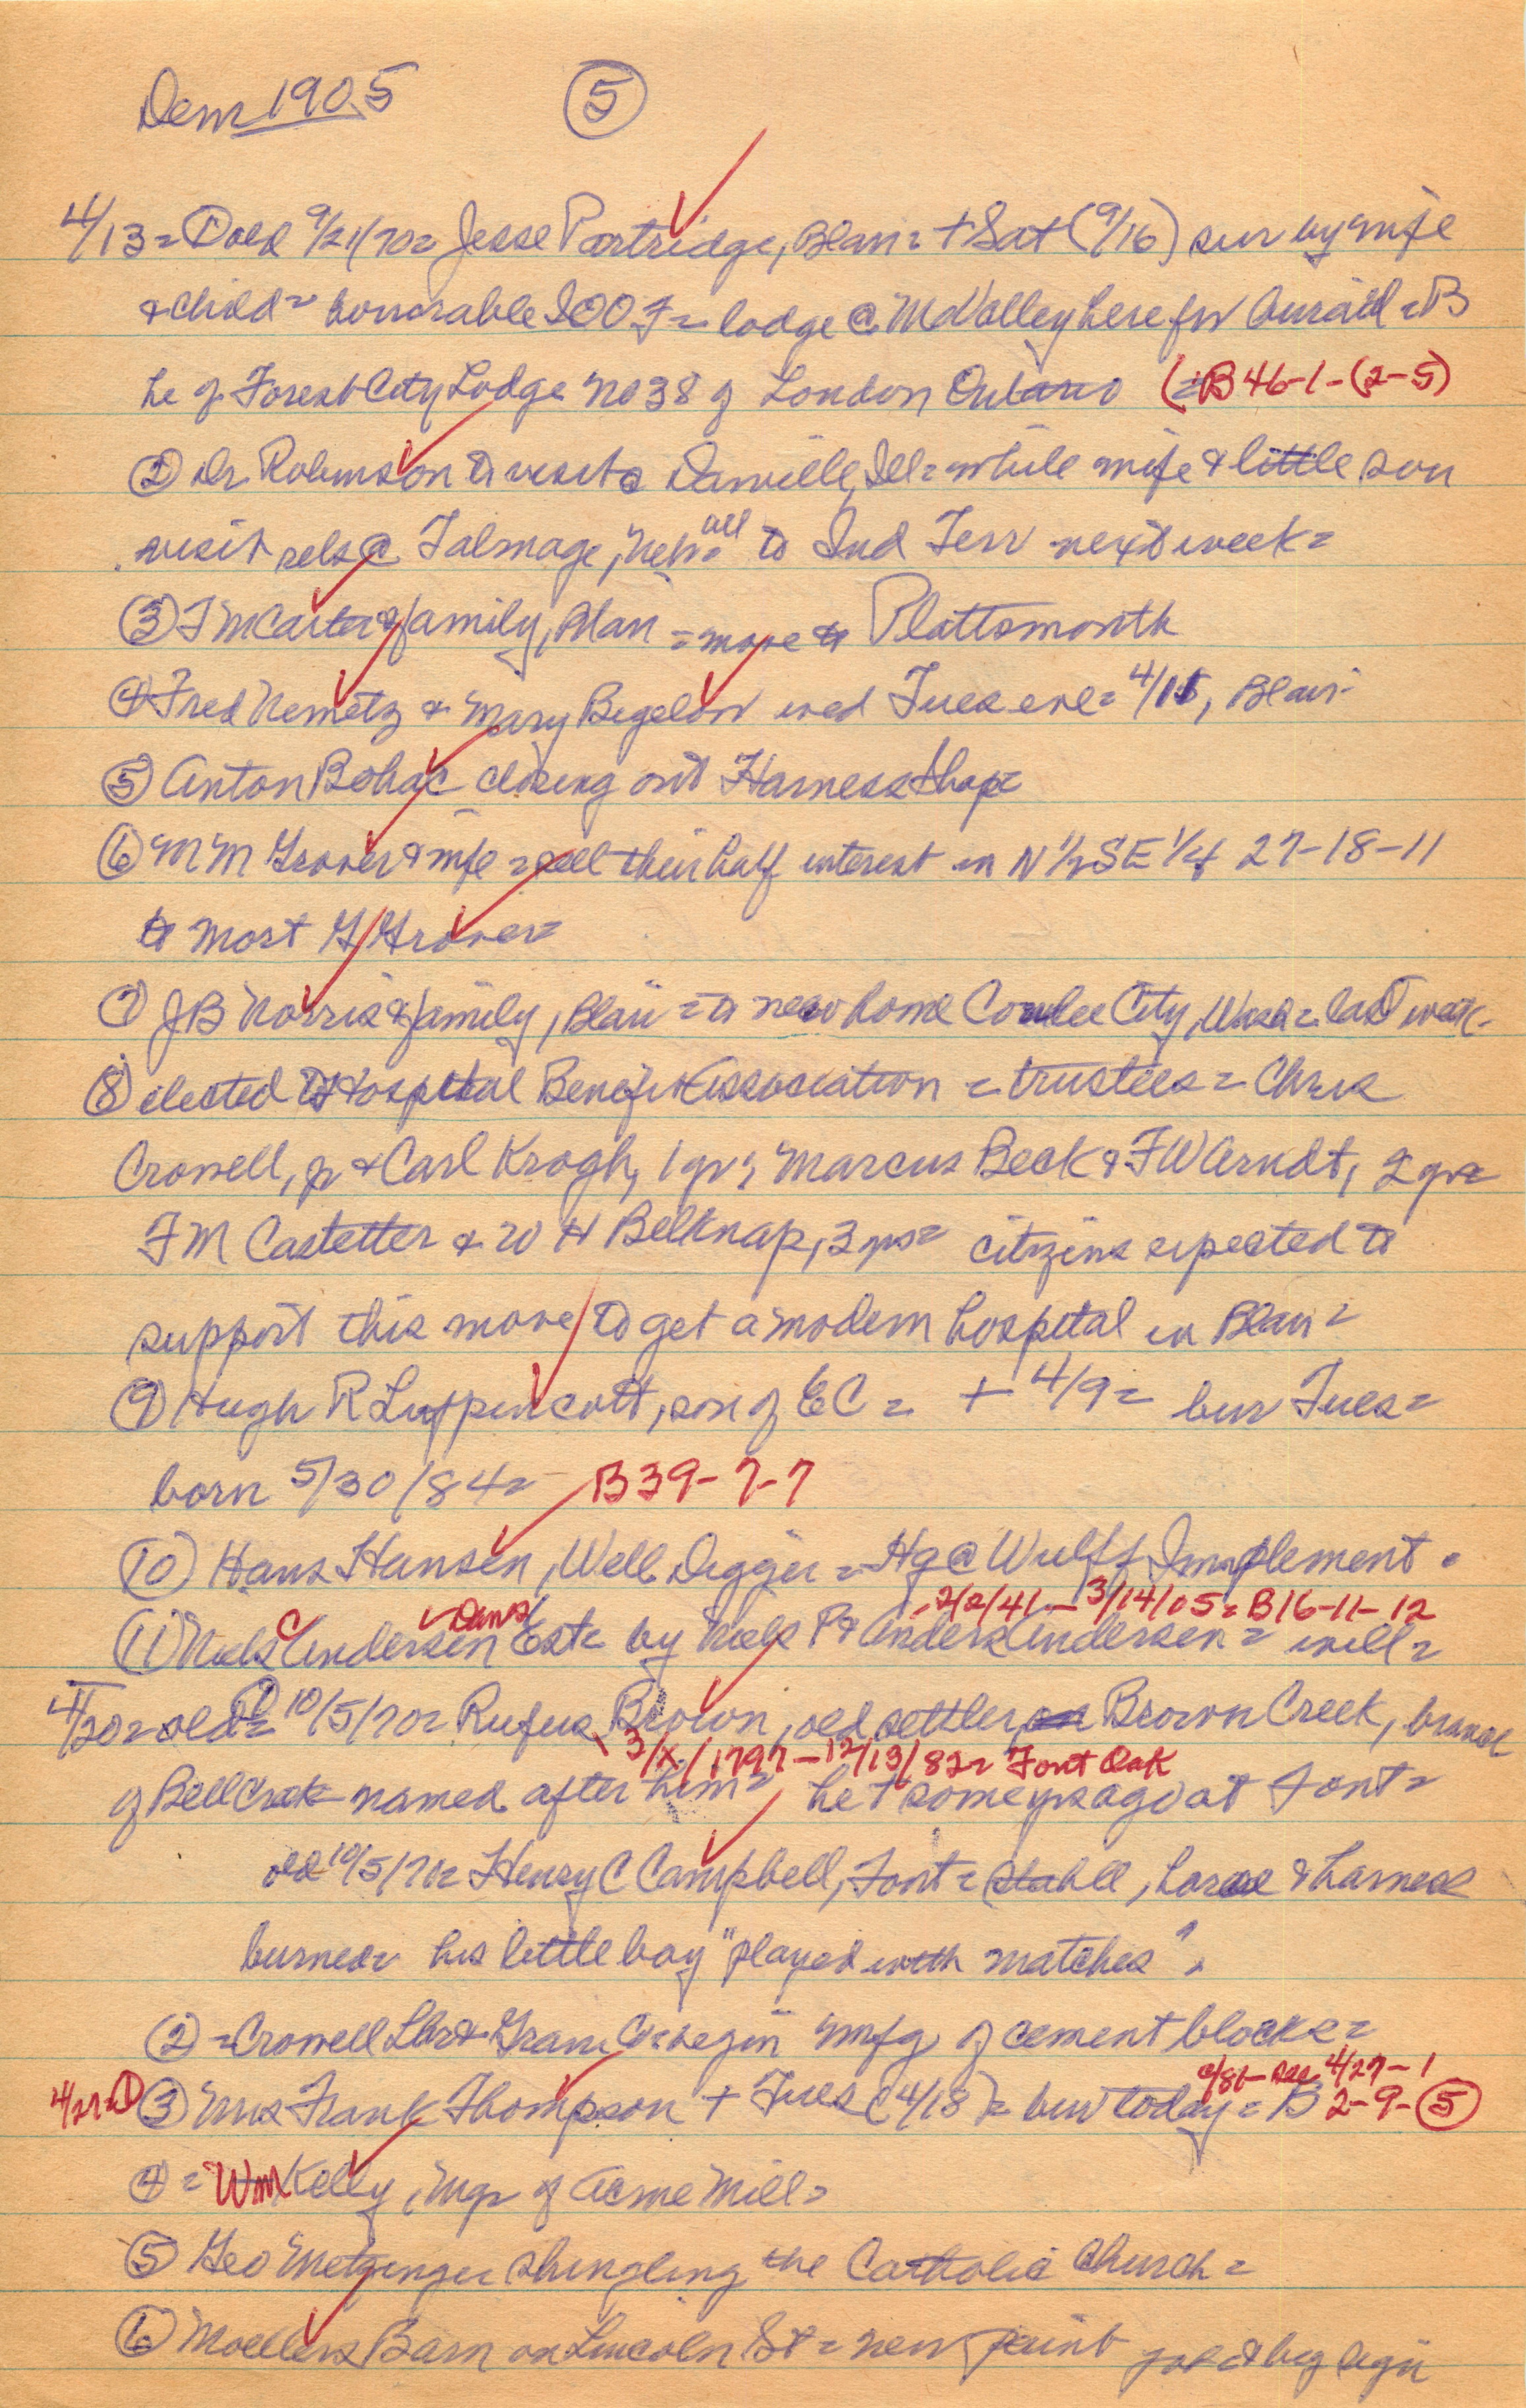 Dem 1905 (5)
4/13 = (1) old 9/21/70 = Jesse Partridge, Blair = + Sat (9/16) sur by wife
& child = honorable IOOF = lodge @ Mo Valley here for burial = B
he of Forest City Lodge No 38 of London Ontario (=B 46-1-(2-5)
(2) Dr Robinson to visit @ Danville, Ill = while wife & little son
visit rels @ Talmage, Neb = all to Ind Terr next week =
(3) F M Carter & family, Blair = move to Plattsmouth
(4) Fred Nemetz & Mary Bigelow wed Tues eve = 4/11, Blair
(5) Anton Bohac closing out Harness Shop =
(6) M M Grover & wife = sell their half interest in N 1/2 SE 1/4 27-18-11
to Mort G Grover =
(7) J B Norris & family, Blair = to new home Coulee City, Wash = last week
(8) elected to Hospital Benefit Association = trustees = Chris
Crowell, jr & Carl Krogh, 1 yr; Marcus Beck & F W Arndt, 2 yr =
F M Castetter & W H Belknap, 3 yrs = citizens expected to
support this move to get a modern hospital in Blair =
(9) Hugh R Lippincott, son of E C = + 4/9 = bur Tues =
born 5/30/84 = B 39-7-7
(10) Hans Hansen, Well Digger = Hq @ Wulff Implement.
- 2/2/41 - 3/14/05 = B 16-11-12
(11) Niels C Andersen Est = by Niels P & Anders Andersen = will =
4/20 = old = (1) 10/5/70 = Rufus Brown, old settler Brown Creek, branch
3/x/1797 - 12/13/82 = Font Oak
of Bell Creek named after him = he + some yrs ago at Font =
old 10/5/70 = Henry C Campbell, Font = stable, horse & harness
burned = his little boy "played with matches".
(2) = Crowell Lbr & Grain Co = begin mfg of cement blocks =
4/27-1
4/27 = (1) (3) Mrs Frank Thompson + Tues (4/18) = bur today = B 2-9-(5)
(4) = Wm Kelly, Mgr of Acme Mill =
(5) Geo Metzinger shingling the Catholic Church =
(6) Moellers Barn on Lincoln St = new paint job & big sign